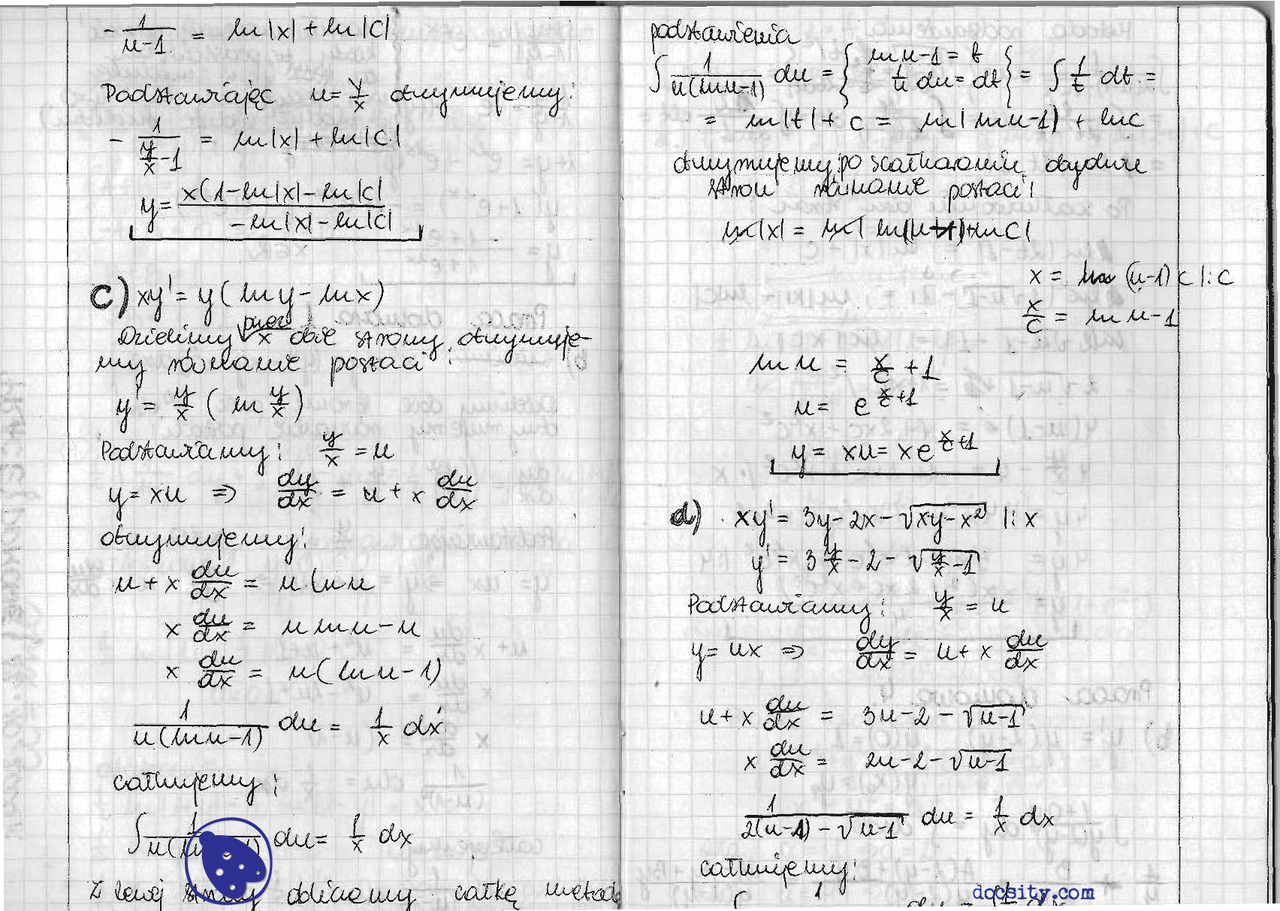 - 1/(u-1) = ln|x| + ln|C|
Podstawiając u = y/x otrzymujemy:
- 1/(y/x - 1) = ln|x| + ln|C|
y = x(1-ln|x|-ln|C| / -ln|x|-ln|C|
c) xy' = y(ln y - ln x)
Dzielimy przez x obie strony, otrzymuje-
my równanie postaci:
y' = y/x (ln y/x)
Podstawiamy: y/x = u
y = xu => dy/dx = u + x du/dx
otrzymujemy:
u + x du/dx = u ln u
x du/dx = u ln u - u
x du/dx = u(ln u - 1)
1/(u(ln u - 1)) du = 1/x dx
całkujemy:
du = 1/x dx
z lewej strony obliczamy całkę metodą
podstawienia
∫ 1/(u(ln u-1)) du = { ln u - 1 = t
1/u du = dt } = ∫ 1/t dt =
= ln|t| + C = ln|ln u-1) + ln c
otrzymujemy po scałkowaniu obydwu
stron równanie postaci:
x = (u-1) C |: C
x/C = ln u - 1
ln u = x/C + 1
u = e^(x/C + 1)
y = xu = x e^(x/C + 1)
d) xy' = 3y - 2x - √(xy - x²) |: x
y' = 3 y/x - 2 - √(y/x - 1)
Podstawiamy: y/x = u
y = ux => dy/dx = u + x du/dx
u + x du/dx = 3u - 2 - √(u-1)
x du/dx = 2u - 2 - √(u-1)
1/(2(u-1) - √(u-1)) du = 1/x dx
całkujemy:
docsity.com